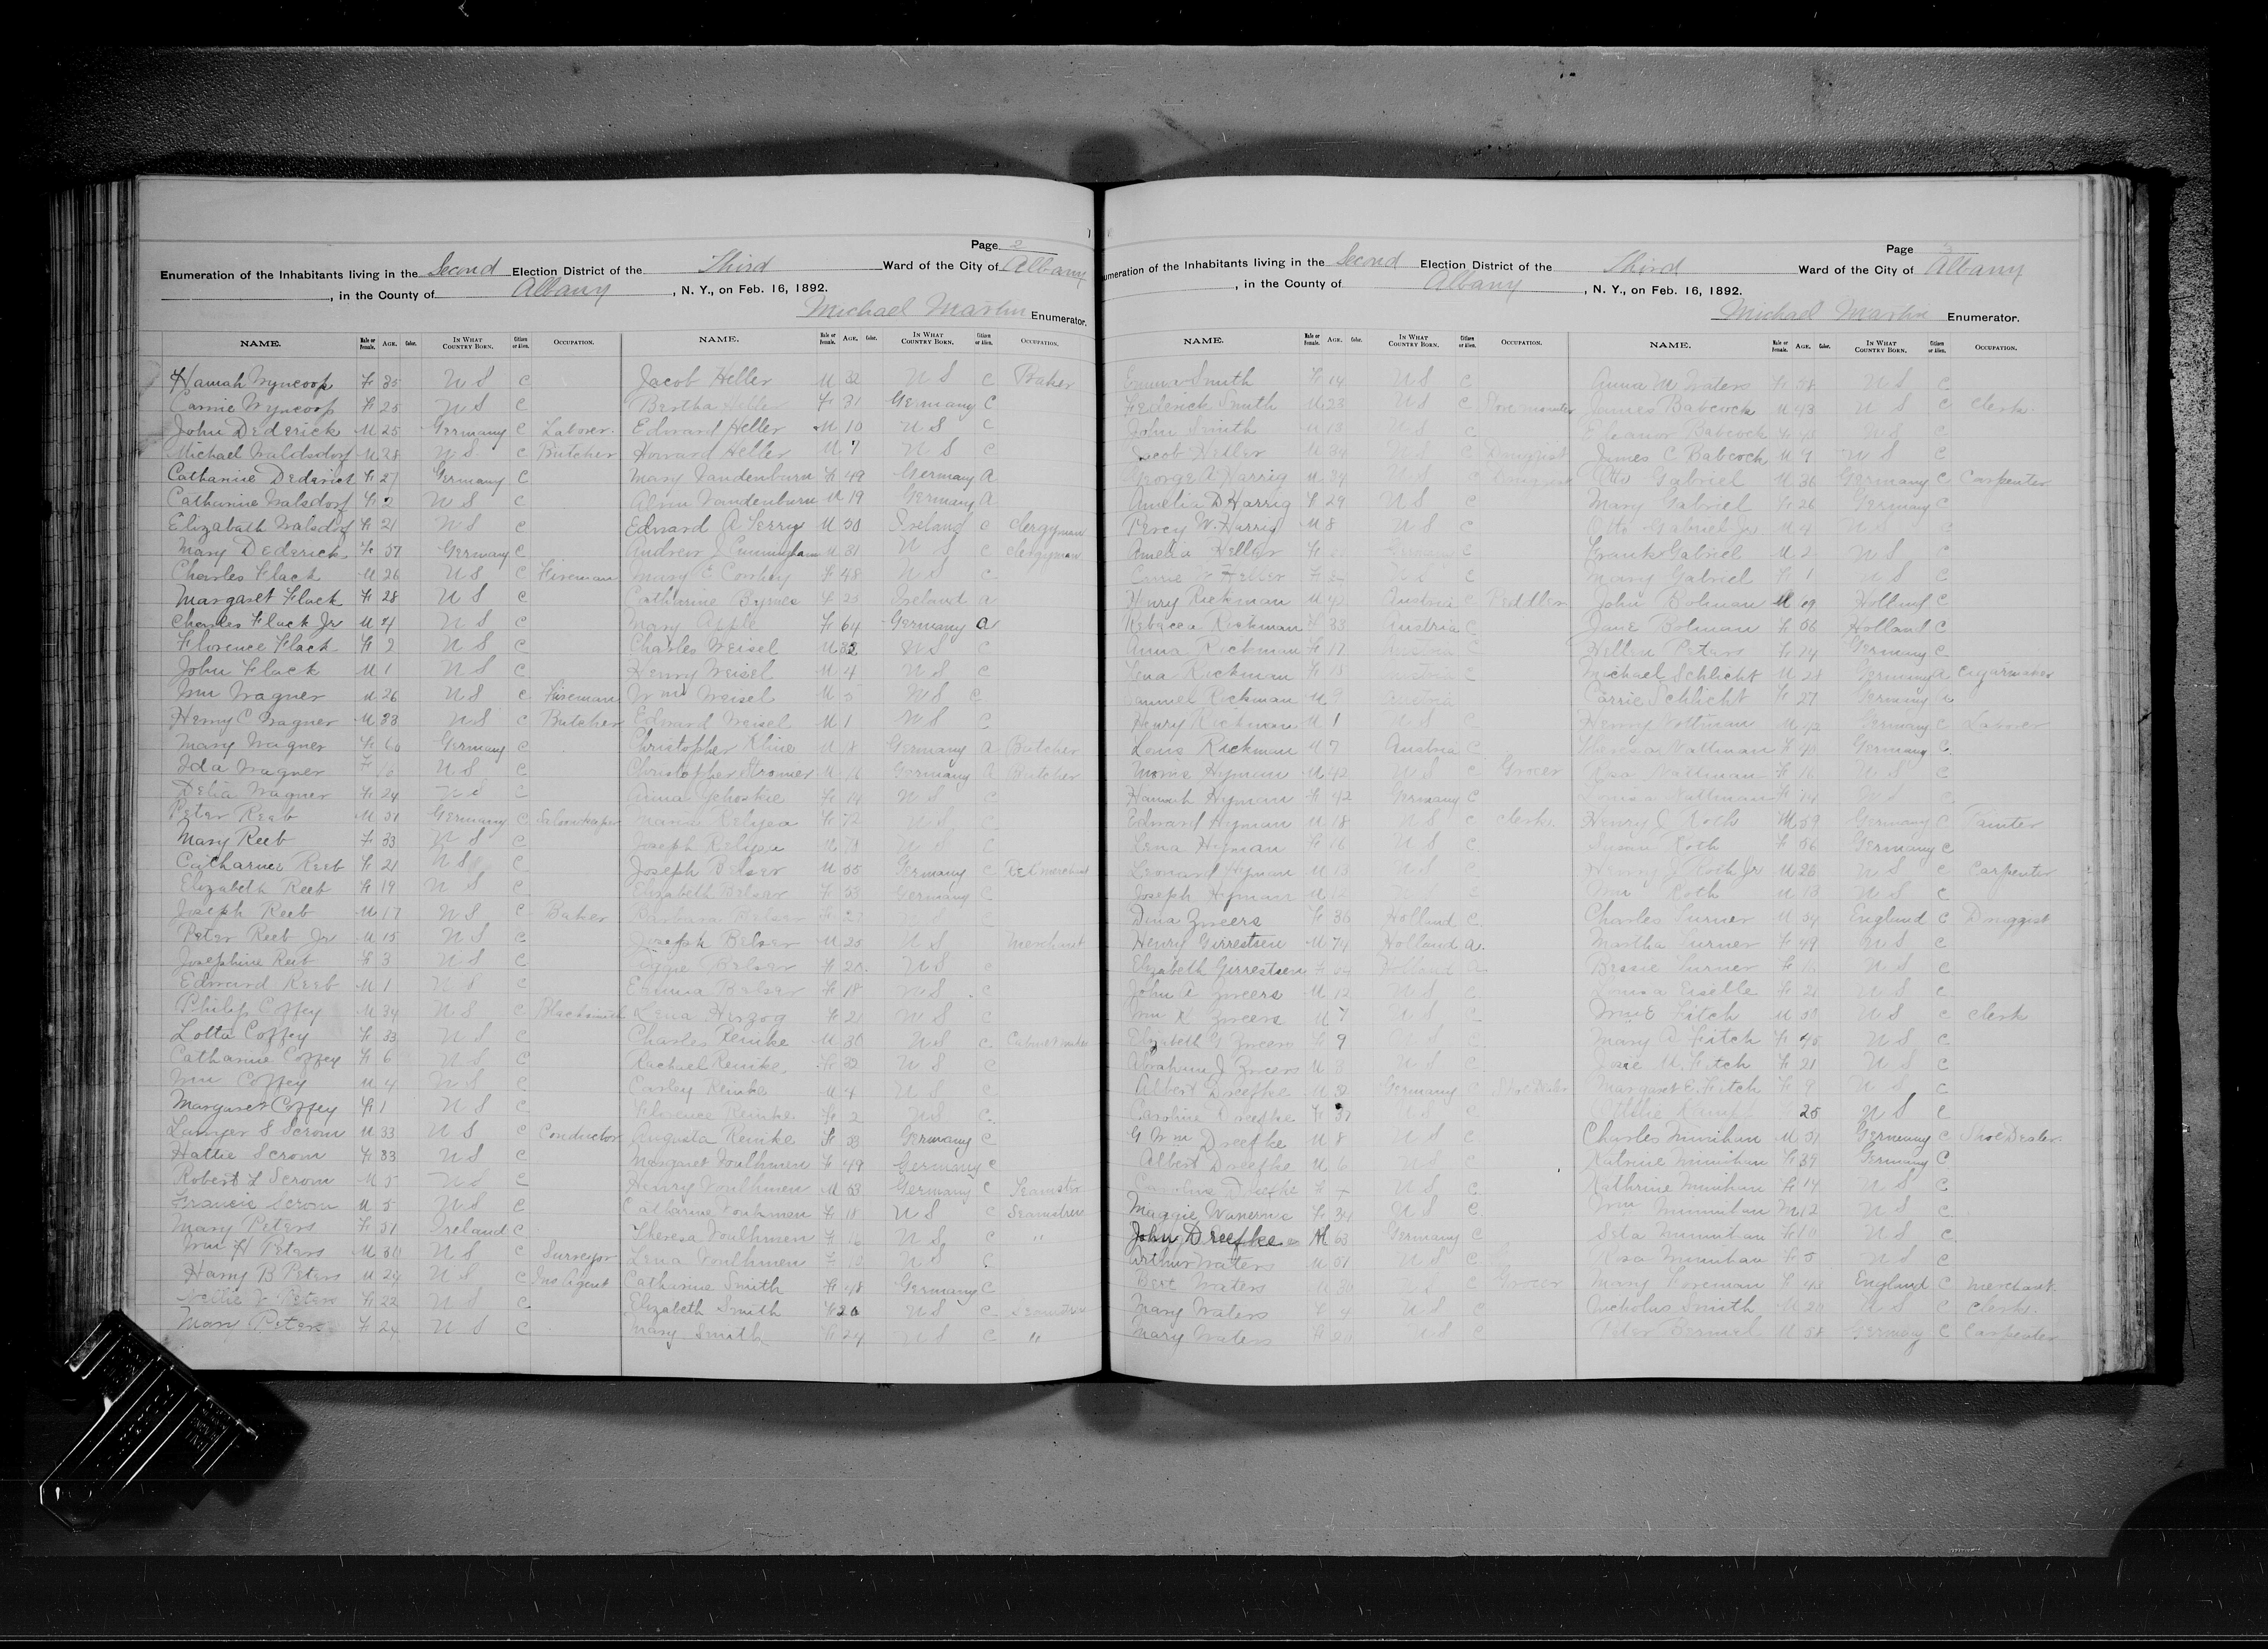 Page 2
Enumeration of the Inhabitants living in the Second Election District of the Third Ward of the City of Albany
, in the County of Albany, N. Y., on Feb. 16, 1892.
Michael Martin Enumerator.
NAME. Male or Female. AGE. Color. IN WHAT COUNTRY BORN. Citizen or Alien. OCCUPATION.
Hannah Wyncoop F 35 U S C
Carrie Wyncoop F 25 U S C
John Dederick M 25 Germany C Laborer
Michael Waldsdorf M 28 U S C Butcher
Catharine Dederick F 27 Germany C
Catharine Walsdorf F 2 U S C
Elizabath Walsdorf F 21 U S C
Mary Dederick F 57 Germany C
Charles Flack M 26 U S C Fireman
Margaret Flack F 28 U S C
Charles Flack Jr M 4 U S C
Florence Flack F 2 U S C
John Flack M 1 U S C
Wm Wagner M 26 U S C Fireman
Henry C Wagner M 33 U S C Butcher
Mary Wagner F 60 Germany C
Ida Wagner F 16 U S C
Delia Wagner F 24 U S C
Peter Reeb M 51 Germany C Saloonkeeper
Mary Reeb F 33 U S C
Catharine Reeb F 21 U S C
Elizabeth Reeb F 19 U S C
Joseph Reeb M 17 U S C Baker
Peter Reeb Jr M 15 U S C
Josephine Reeb F 3 U S C
Edward Reeb M 1 U S C
Philip Coffey M 34 U S C Blacksmith
Lotta Coffey F 33 U S C
Catharine Coffey F 6 U S C
Wm Coffey M 4 U S C
Margaret Coffey F 1 U S C
Scrom M 33 U S C Conductor
Hattie Scrom F 33 U S C
Robert F Scrom M 5 U S C
Francis Scrom M 5 U S C
Mary Peters F 51 Ireland C
Wm H Peters M 30 U S C Surveyor
Harry B Peters M 24 U S C Ins Agent
Nellie Peters F 22 U S C
Mary Peters F 24 U S C
NAME. Male or Female. AGE. Color. IN WHAT COUNTRY BORN. Citizen or Alien. OCCUPATION.
Jacob Heller M 32 U S C Baker
Bertha Heller F 31 Germany C
Edward Heller M 10 U S C
Howard Heller M 7 U S C
Mary Vandenburn F 49 Germany A
Vandenburn M 19 Germany A
Edward A Terry M 50 Ireland C Clergyman
Andrew J Cunningham M 31 U S C Clergyman
Mary E F 48 U S C
Catharine Byrnes F 25 Ireland A
Mary Apple F 64 Germany A
Charles Weisel M 32 U S C
Henry Weisel M 4 U S C
Wm Weisel M 5 U S C
Edward Weisel M 1 U S C
Christopher Kline M 18 Germany A Butcher
Christopher Stromer M Germany A Butcher
Anna F 14 U S C
Maria Relyea F 72 U S C
Joseph Relyea M U S C
Joseph Belser M 55 Germany C Ret merchant
Elizabeth Belser F 53 Germany C
Barbara Belser F 27
Joseph Belser M 25 U S Merchant
Lizzie Belser F 20 U S C
Emma Belser F 18 U S C
Lena Herzog F 21 U S C
Charles Reinke M 36 U S C Cabinet maker
Rachael Reinke F 32 U S C
Carley Reinke M 4 U S C
Florence Reinke F 2 U S C
Augusta Reinke F 53 Germany C
Margaret Voulhmen F 49 Germany C
Henry Voulhmen M 53 Germany C Teamster
Catharine Voulhmen F 18 U S C Seamstress
Theresa Voulhmen F 16 U S C "
Lena Voulhmen F U S C
Catharine Smith F 48 Germany C
Elizabeth Smith F 26 U S C Seamstress
Mary Smith F 24 U S C "
Page 3
Enumeration of the Inhabitants living in the Second Election District of the Third Ward of the City of Albany
, in the County of Albany, N. Y., on Feb. 16, 1892.
Michael Martin Enumerator.
NAME. Male or Female. AGE. Color. IN WHAT COUNTRY BORN. Citizen or Alien. OCCUPATION.
Emma Smith F 14 U S C
Federick Smith M 23 U S C
John Smith M 13 U S C
Jacob Heller M 34 U S C Druggist
George A Harrig M 39 U S C
Amelia D Harrig F 29 U S C
Percy W. Harrig M 8 U S C
Amelia Heller F Germany C
Carrie Heller F U S C
Henry Rickman M 42 Austria C Peddler
Rebacca Rickman F 33 Austria C
Anna Rickman F 17 Austria C
Lena Rickman F 15 Austria C
Samuel Rickman M 9 Austria
Henry Rickman M 1 U S C
Louis Rickman M 7 Austria C
Morris Hyman M 42 U S C Grocer
Hannah Hyman F 42 Germany C
Edward Hyman M 18 U S C Clerk
Lena Hyman F 16 U S C
Leonard Hyman M 13 U S C
Joseph Hyman M 12 U C
Dina Zweers F 36 Holland C
Henry Girrestsen M 74 Holland A
Elizabeth Girrestsen F Holland A
John A Zweers M 12 U S C
Wm K Zweers M 7 U S C
Elizabeth G Zweers F 9 U S C
Abraham J Zweers M 3 U S C
Albert Dreefke M 32 Germany C Shoe Dealer
Caroline Dreefke F 37 U S C
G Wm Dreefke M 8 U S C
Albert Dreefke M 6 U S C
Carolus Dreefke U S C
Maggie F 34 U S C
John Dreefke M 63 Germany C
Arthur Waters M 51 U S C
Bert Waters M 30 C Grocer
Mary Waters F U S C
Mary Waters F 20 U S C
NAME. Male or Female. AGE. Color. IN WHAT COUNTRY BORN. Citizen or Alien. OCCUPATION.
Anna M Waters F 58 U S C
James Babcock M 43 U S C Clerk
Eleanor Babcock F U S C
James C Babcock M 9 U S C
Otto Gabriel M 36 Germany C Carpenter
Mary Gabriel F 26 Germany C
Otto Gabriel Jr M 4 U S C
Frank Gabriel M 2 U S C
Mary Gabriel F 1 U S C
John Bolman M 69 Holland C
Jane Bolman F 56 Holland C
Hellen Peters F 74 Germany C
Michael Schlicht M 28 Germany A Cigarmaker
Carrie Schlicht F 27 Germany A
Henry Nottman M 42 Germany C Laborer
Theresa Nattman F Germany C
Rosa Nattman F 16 U S C
Louisa Nattman F 14 U S C
Henry J Roth M 59 Germany C Painter
Susan Roth F 56 Germany C
Henry J Roth Jr M 26 U S C Carpenter
Wm Roth M 13 U S C
Charles Turner M 54 England C Druggist
Martha Turner F 49 U S C
Bessie Turner F 16 U S C
Louisa Eiselle F 21 U S C
Wm E Fitch M 51 U S C Clerk
Mary A Fitch F 45 U S C
M Fitch F 21 U S C
Margaret E. Fitch F 9 U S C
25 U S C
Charles Minihan M 51 Germany C Shoe Dealer
Katrine Minihan F 39 Germany C
Kathrine Minihan F 14 U S C
Wm Minihan M 12 U S C
Minihan F 10 U S C
Rosa Minihan F 5 U S C
Mary Foreman F 48 England C Merchant
Nicholas Smith M 20 U S C Clerk
Peter M 58 Germany C Carpenter